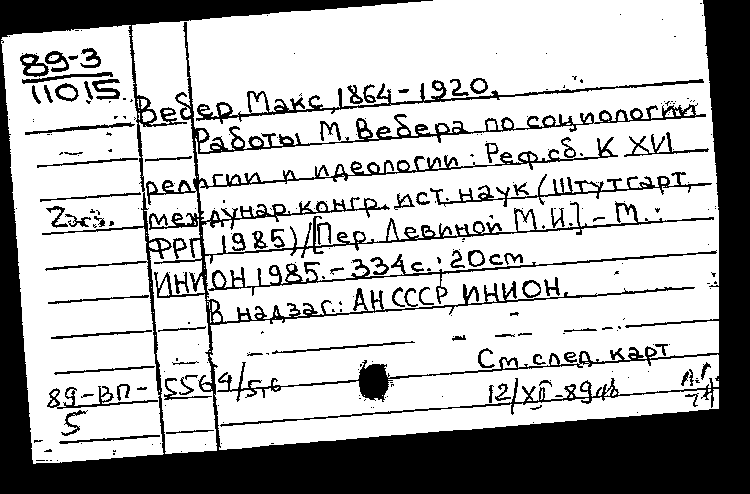 89-3
11015
Вебер, Макс, 1864-1920.
Работы М. Вебера по социологии
религии и идеологии: Реф. сб. К XVI
2 экз. междунар. конгр. ист. наук (Штутгарт,
ФРГ, 1985)/[Пер. Левиной М.И.].- М.:
ИНИОН, 1985.- 334 с.; 20 см.
В надзаг.: АН СССР, ИНИОН.
См. след. карт
89-ВП- 5564/5,6
12/XII-89
5